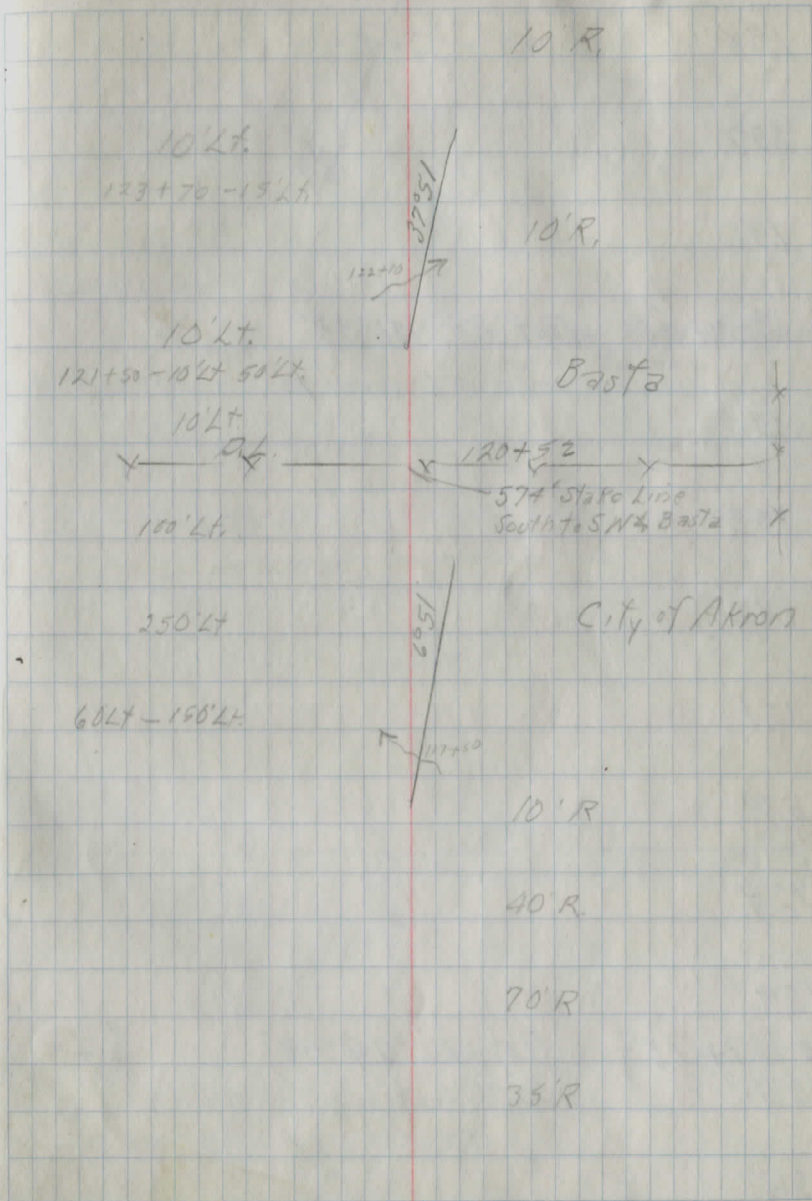 10'R.
10'Lt.
123+70-15'Lt.
37°51
10'R.
122+10
10'Lt.
121+50-10'Lt 50'Lt.
Basta
10'Lt.
120+52
574' Stake Line
South to SW¼ Basta
100'Lt.
6°51
250'Lt
City of Akron
60Lt-150'Lt.
117+50
10'R
40'R.
70'R
35'R